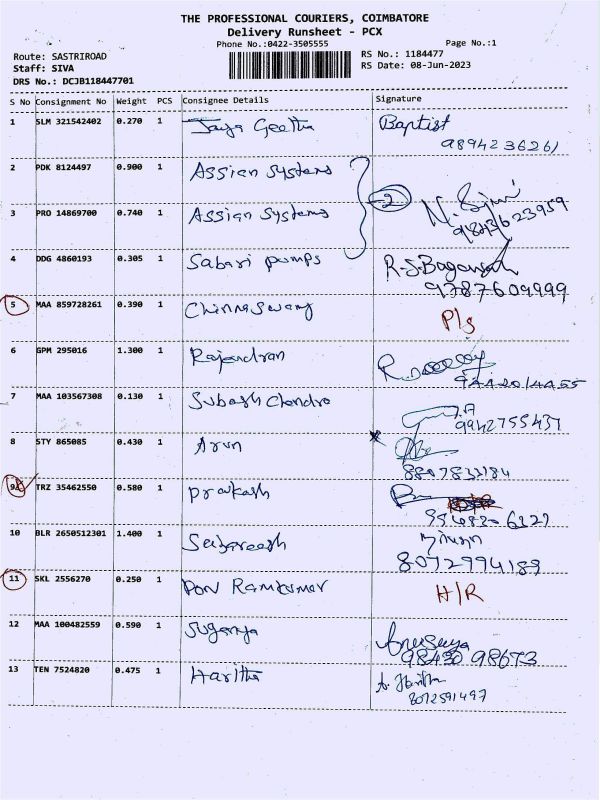 THE PROFESSIONAL COURIERS, COIMBATORE
Delivery Runsheet - PCX
Phone No.:0422-3505555
Page No.:1
Route: SASTRIROAD
RS No.: 1184477
Staff: SIVA
RS Date: 08-Jun-2023
DRS No.: DCJB118447701
S No Consignment No Weight PCS Consignee Details Signature
1 SLM 321542402 0.270 1 Jaya Geetha Baptist
9894236261
2 PDK 8124497 0.900 1 Assian Systems
2
3 PRO 14869700 0.740 1 Assian Systems
9843623959
4 DDG 4860193 0.305 1 Sabari pumps
9787609999
5 MAA 859728261 0.390 1 Chinnaswamy P/s
6 GPM 295016 1.300 1 Rajendran
7 MAA 103567308 0.130 1 Subash Chandra
9942755437
8 STY 865085 0.430 1 Arun
9 TRZ 35462550 0.580 1 prakash
10 BLR 2650512301 1.400 1
8072994189
11 SKL 2556270 0.250 1 Pon Ramkumar H/R
12 MAA 100482559 0.590 1 Suganya Anusuya
98430 98673
13 TEN 7524820 0.475 1 Haritha A. Haritha
8072591497